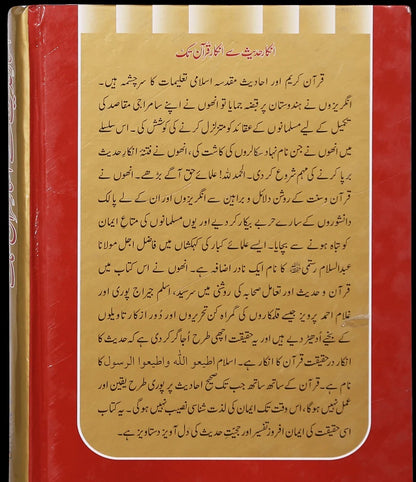 انکارِ حدیث سے انکارِ قرآن تک
قرآن کریم اور احادیث مقدسہ اسلامی تعلیمات کا سرچشمہ ہیں۔
انگریزوں نے ہندوستان پر قبضہ جمایا تو انھوں نے اپنے سامراجی مقاصد کی
تکمیل کے لیے مسلمانوں کے عقائد کو متزلزل کرنے کی کوشش کی۔ اس سلسلے
میں انھوں نے جن نام نہاد سکالروں کی کاشت کی، انھوں نے فتنۂ انکارِ حدیث
برپا کرنے کی مہم شروع کر دی۔ الحمد للہ! علمائے حق آگے بڑھے۔ انھوں نے
قرآن و سنت کے روشن دلائل و براہین سے انگریزوں اور ان کے لے پالک
دانشوروں کے سارے حربے بیکار کر دیے اور یوں مسلمانوں کی متاعِ ایمان
کو تباہ ہونے سے بچایا۔ ایسے علمائے کبار کی کہکشاں میں فاضل اجل مولانا
عبدالسلام رستمی کا نام ایک نادر اضافہ ہے۔ انھوں نے اس کتاب میں
قرآن و حدیث اور تعامل صحابہ کی روشنی میں سرسید، اسلم جیراج پوری اور
غلام احمد پرویز جیسے قلمکاروں کی گمراہ کن تحریروں اور دُور از کار تاویلوں
کے بخیے اُدھیڑ دیے ہیں اور یہ حقیقت اچھی طرح اُجاگر کر دی ہے کہ حدیث کا
انکار درحقیقت قرآن کا انکار ہے۔ اسلام اطیعو اللہ واطیعوا الرسول کا
نام ہے۔ قرآن کے ساتھ ساتھ جب تک صحیح احادیث پر پوری طرح یقین اور
عمل نہیں ہوگا، اس وقت تک ایمان کی لذت شناسی نصیب نہیں ہوگی۔ یہ کتاب
اسی حقیقت کی ایمان افروز تفسیر اور حجیتِ حدیث کی دل آویز دستاویز ہے۔